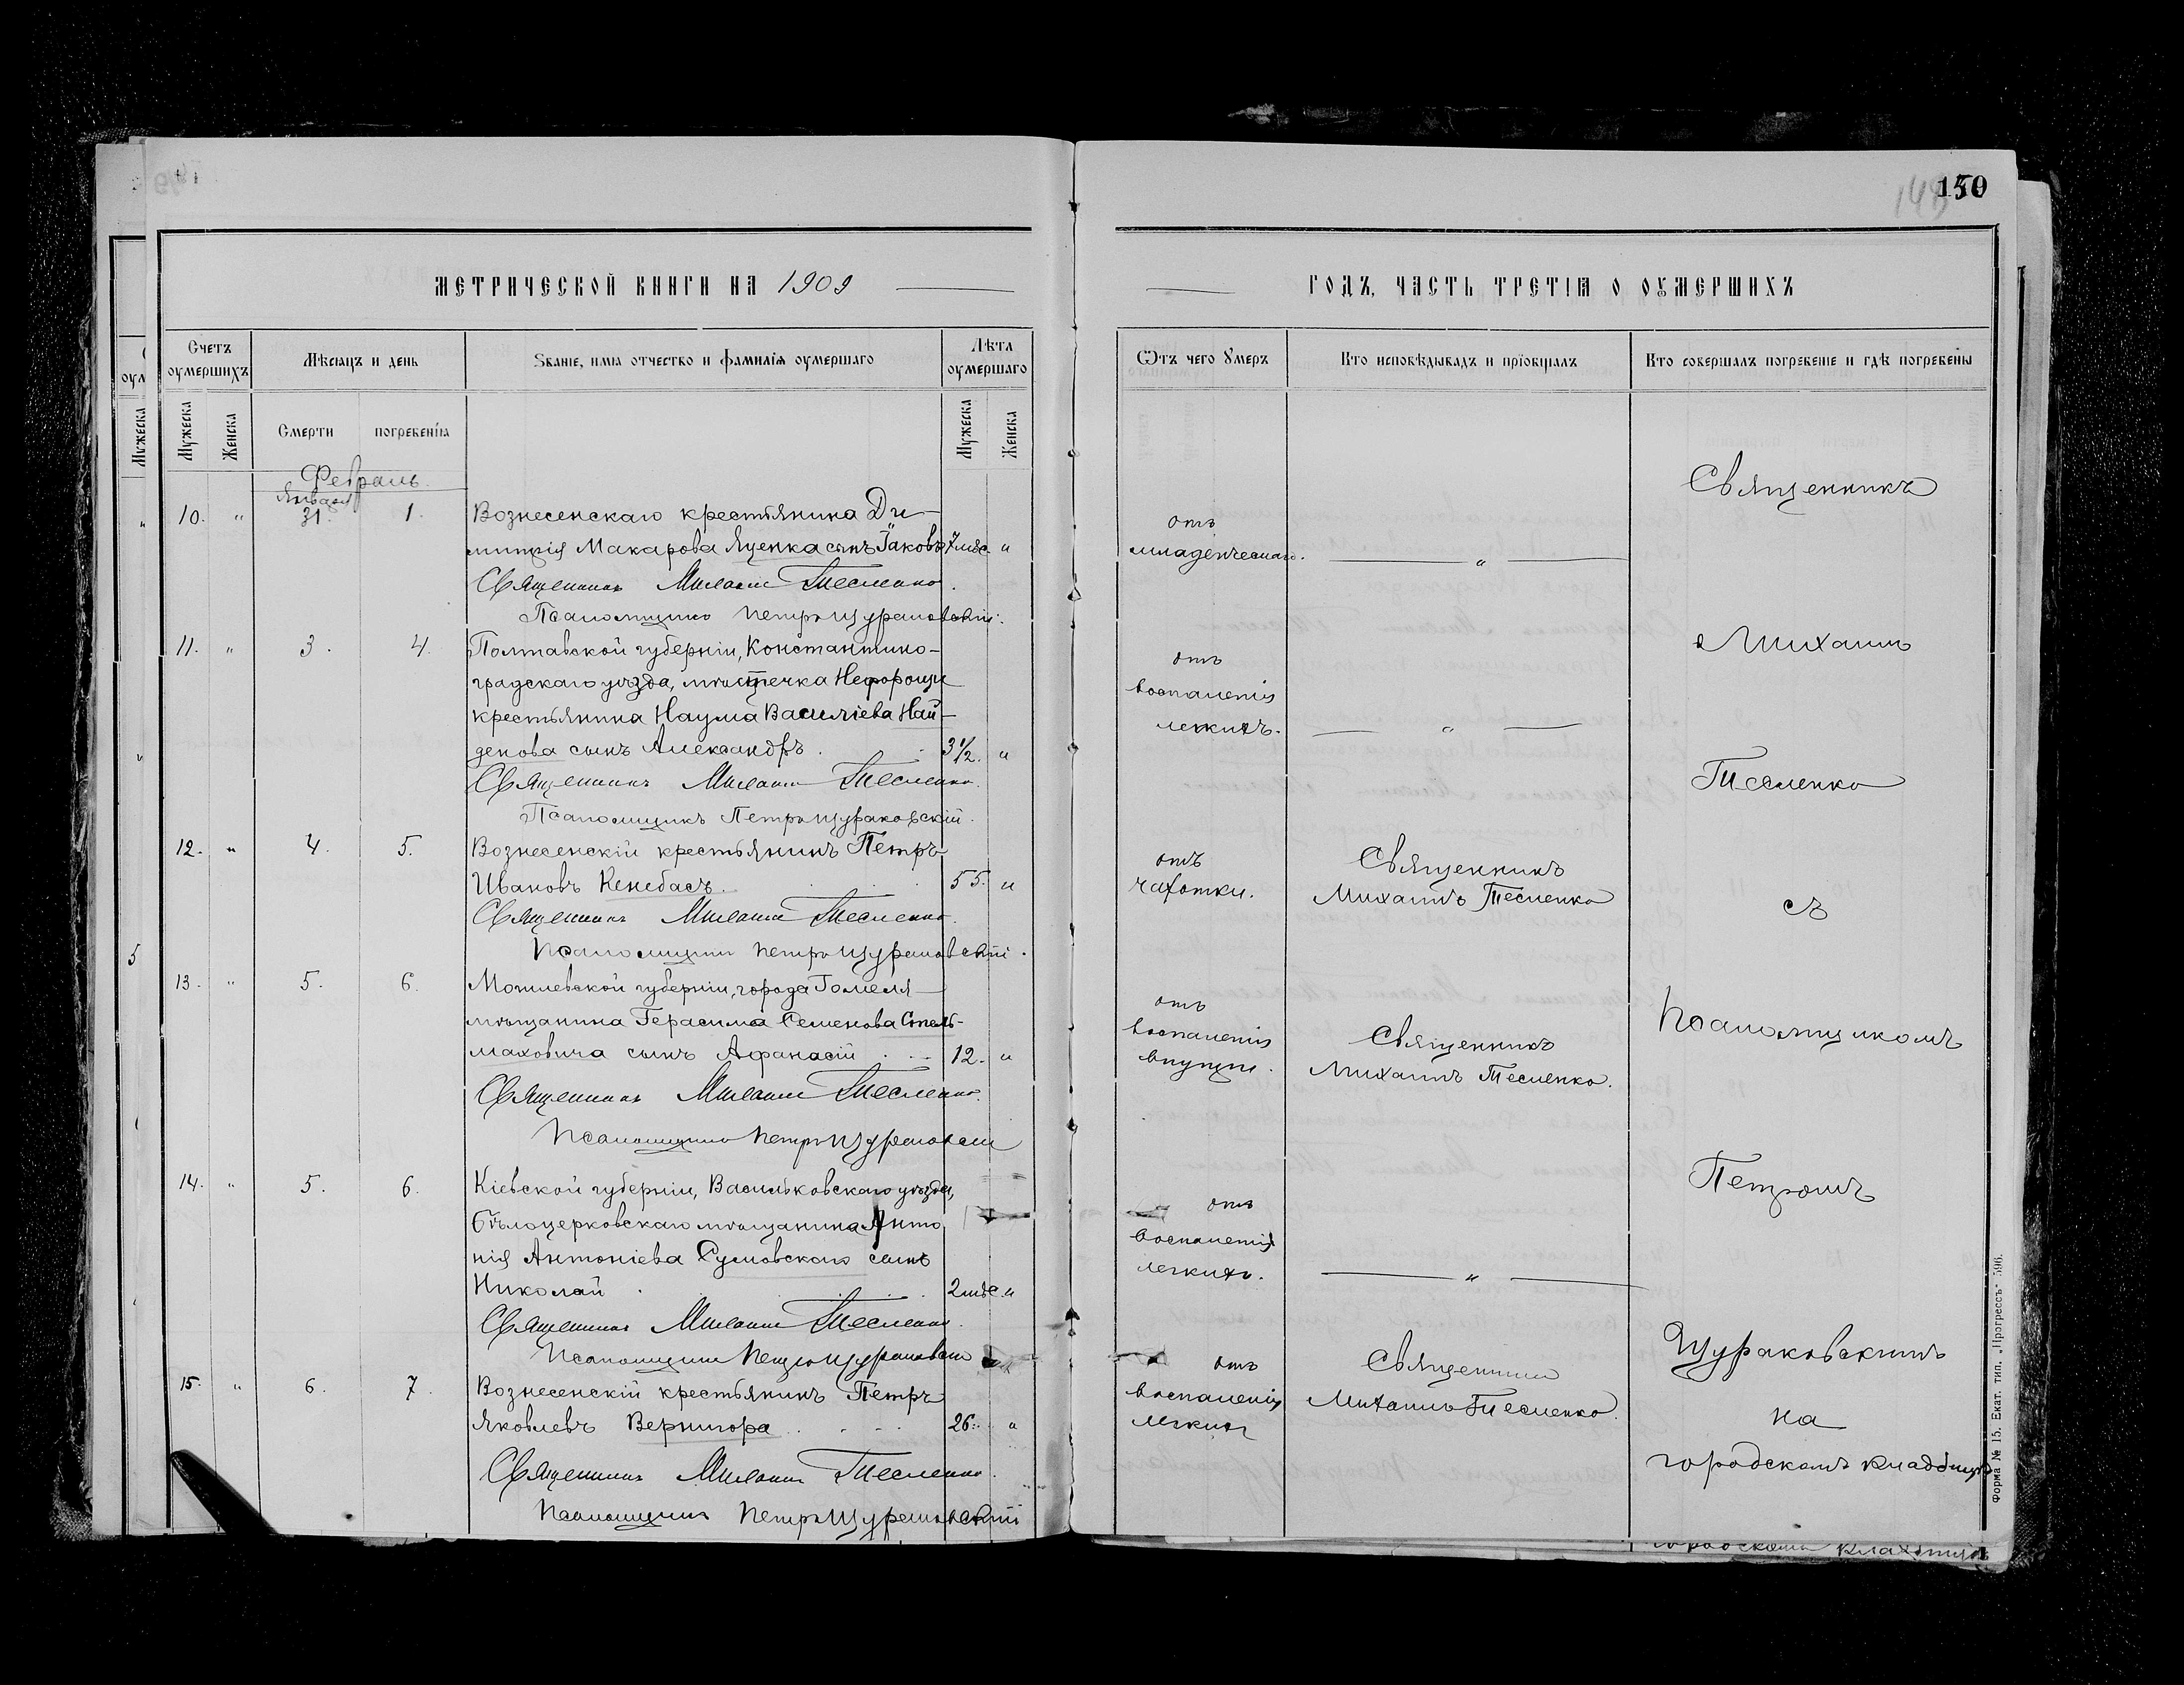 150
МЕТРИЧЕСКОЙ КНИГИ НА 1909
ГОДЪ, ЧАСТЬ ТРЕТІЯ О ОУМЕРШИХЪ
Счетъ оумершихъ
Мѣсяцъ и день
Званіе, имя отчество и фамилія оумершаго
Лѣта оумершаго
Отъ чего умеръ
Кто исповѣдывалъ и пріобщалъ
Кто совершалъ погребеніе и гдѣ погребены
Мужеска
Женска
Смерти
погребенія
Мужеска
Женска
Февраль.
Января
10. " 31. 1. Вознесенскаго крестьянина Ди-
митрія Макарова Яценка сынъ Іаковъ 7 мѣс. "
отъ
младенческаго.
Священникъ Михаилъ Тесленко.
Псаломщикъ Петръ Щураковскій.
11. " 3. 4. Полтавской губерніи, Константино-
градскаго уѣзда, мѣстечка Нефорощи
крестьянина Наума Василіева Най-
денова сынъ Александръ. 3 1/2. "
отъ
воспаленія
легкихъ.
Священникъ Михаилъ Тесленко.
Псаломщикъ Петръ Щураковскій.
12. " 4. 5. Вознесенскій крестьянинъ Петръ
Ивановъ Кенебасъ. 55. "
отъ
чахотки.
Священникъ
Михаилъ Тесленко
Священникъ Михаилъ Тесленко.
Псаломщикъ Петръ Щураковскій.
13. " 5. 6. Могилевской губерніи, города Гомеля
мѣщанина Герасима Семенова Стель-
маховича сынъ Афанасій 12. "
отъ
воспаленія
Священникъ
Михаилъ Тесленко.
Священникъ Михаилъ Тесленко.
Псаломщикъ Петръ Щураковскій
14. " 5. 6. Кіевской губерніи, Васильковскаго уѣзда,
Бѣлоцерковскаго мѣщанина Анто
нія Антоніева Сумовскаго сынъ
Николай 2 мѣс. "
отъ
воспаленія
легкихъ.
Священникъ Михаилъ Тесленко.
Псаломщикъ Петръ Щураковскій
15. " 6. 7. Вознесенскій крестьянинъ Петръ
Яковлевъ Вернигора 26. "
отъ
воспаленія
легкихъ
Священникъ
Михаилъ Тесленко.
Священникъ Михаилъ Тесленко.
Псаломщикъ Петръ Щураковскій
Священникъ
Михаилъ
Тесленко
съ
Псаломщикомъ
Петромъ
Щураковскимъ
на
городскомъ кладбищѣ
Форма № 15. Екат. тип. „Прогрессъ" 596.